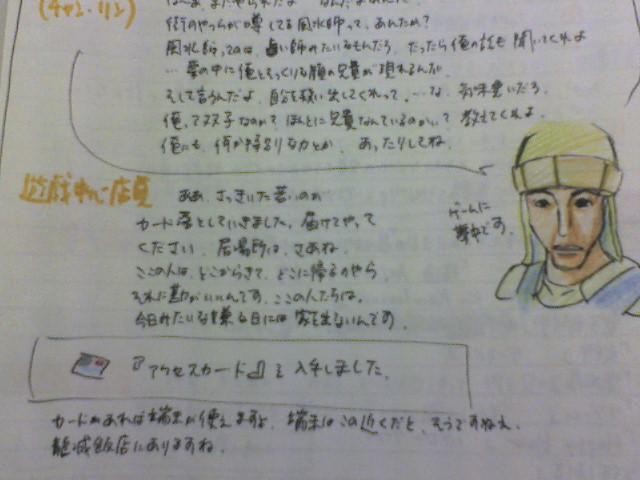 (チャン・リン)
街のやつらが噂してる風水師って、あんたか?
風水師ってのは、占い師みたいなもんだろ、だったら俺の話も聞いてくれよ
… 夢の中に俺とそっくりな顔の兄貴が現れるんだ
そして言うんだよ、自分を救い出してくれって。…な、気味悪いだろ
俺って双子なのか? ほんとに兄貴なんているのか…? 教えてくれよ
俺にも、何か特別な力とか、あったりしてね。
ゲームに
夢中です。
遊戯中心店員
ああ、さっきいた若いのが
カード落としていきました。届けてやって
ください、居場所は、さあね。
ここの人は、どこからきて、どこに帰るのやら
それに勘がいいんです、ここの人たちは。
今日みたいな日には家を出ないんです。
『アクセスカード』を入手しました。
カードがあれば端末が使えますよ、端末はこの近くだと、そうですねえ、
龍城飯店にありますね。